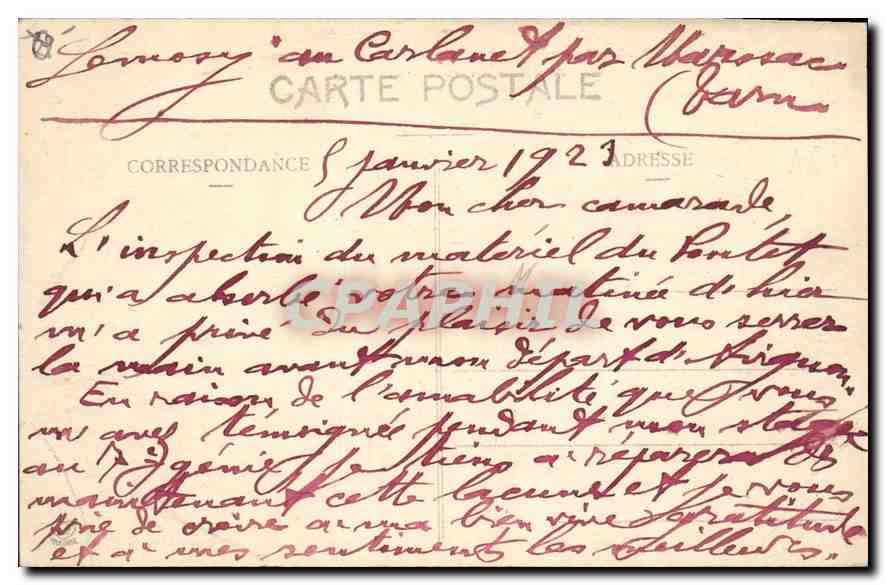 "Lemosy" au Carlanet par Marssac
CARTE POSTALE
(Tarn
CORRESPONDANCE
ADRESSE
5 janvier 1923
Mon cher camarade,
L'inspection du matériel du Pontet
qui a absorbé votre matinée d'hier
m'a privé du plaisir de vous serrer
la main avant mon départ d'Avignon.
En raison de l'amabilité que vous
m'avez témoignée pendant mon stage
au 7e génie, je tiens à réparer dès
maintenant cette lacune et je vous
prie de croire à ma bien vive gratitude
et à mes sentiments les meilleurs.
CPAPHIL